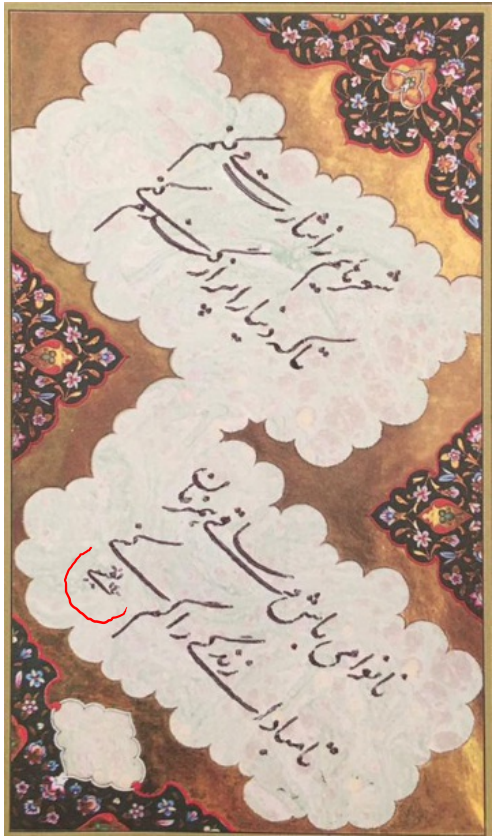 شعرهایم را نثارت می‌کنم
تا که دنیا را پر از گندم کنی
نانوا می‌باش و ساقی همزمان
تا مبادا زندگی را گم کنی